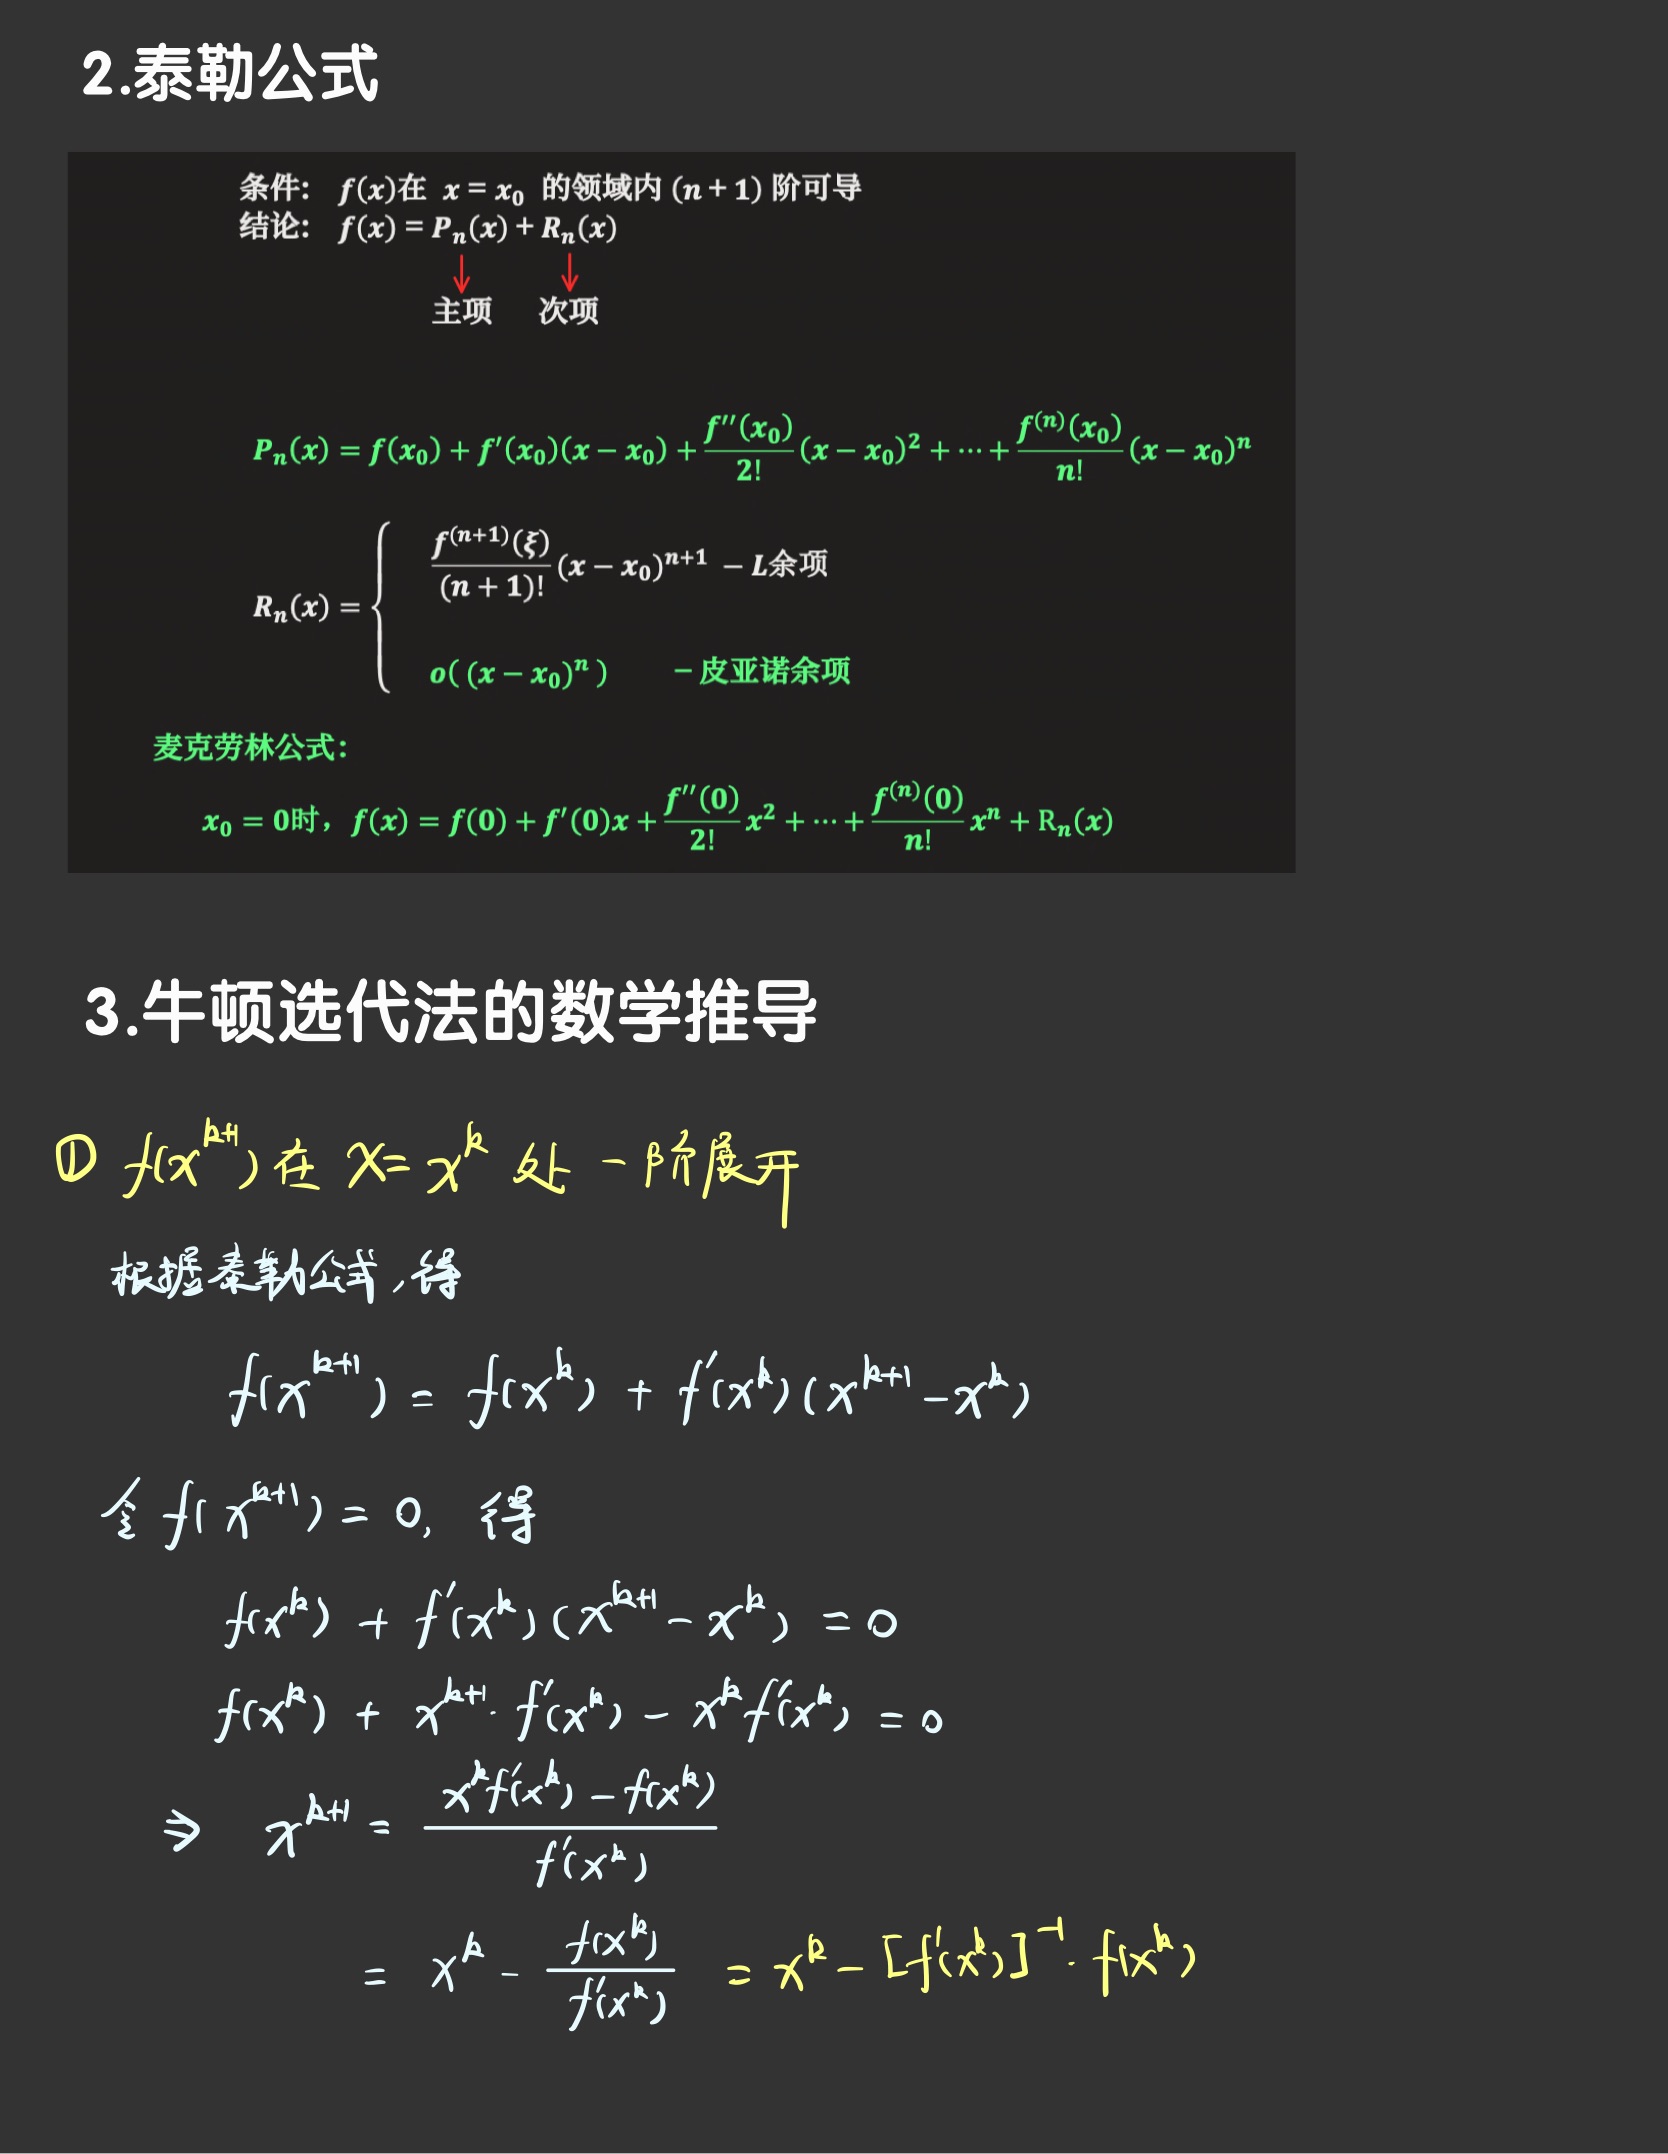 2.泰勒公式
条件: f(x)在 x = x₀ 的领域内 (n + 1) 阶可导
结论: f(x) = Pₙ(x) + Rₙ(x)
主项 次项
Pₙ(x) = f(x₀) + f′(x₀)(x − x₀) + f′′(x₀)/2! (x − x₀)² + ⋯ + f⁽ⁿ⁾(x₀)/n! (x − x₀)ⁿ
Rₙ(x) = { f⁽ⁿ⁺¹⁾(ξ)/(n + 1)! (x − x₀)ⁿ⁺¹ − L余项
o( (x − x₀)ⁿ ) − 皮亚诺余项
麦克劳林公式:
x₀ = 0时, f(x) = f(0) + f′(0)x + f′′(0)/2! x² + ⋯ + f⁽ⁿ⁾(0)/n! xⁿ + Rₙ(x)
3.牛顿选代法的数学推导
① f(xᵏ⁺¹)在 x = xᵏ 处一阶展开
根据泰勒公式,得
f(xᵏ⁺¹) = f(xᵏ) + f′(xᵏ)(xᵏ⁺¹ − xᵏ)
令 f(xᵏ⁺¹) = 0, 得
f(xᵏ) + f′(xᵏ)(xᵏ⁺¹ − xᵏ) = 0
f(xᵏ) + xᵏ⁺¹·f′(xᵏ) − xᵏf′(xᵏ) = 0
⇒ xᵏ⁺¹ = (xᵏf′(xᵏ) − f(xᵏ))/f′(xᵏ)
= xᵏ − f(xᵏ)/f′(xᵏ) = xᵏ − [f′(xᵏ)]⁻¹·f(xᵏ)